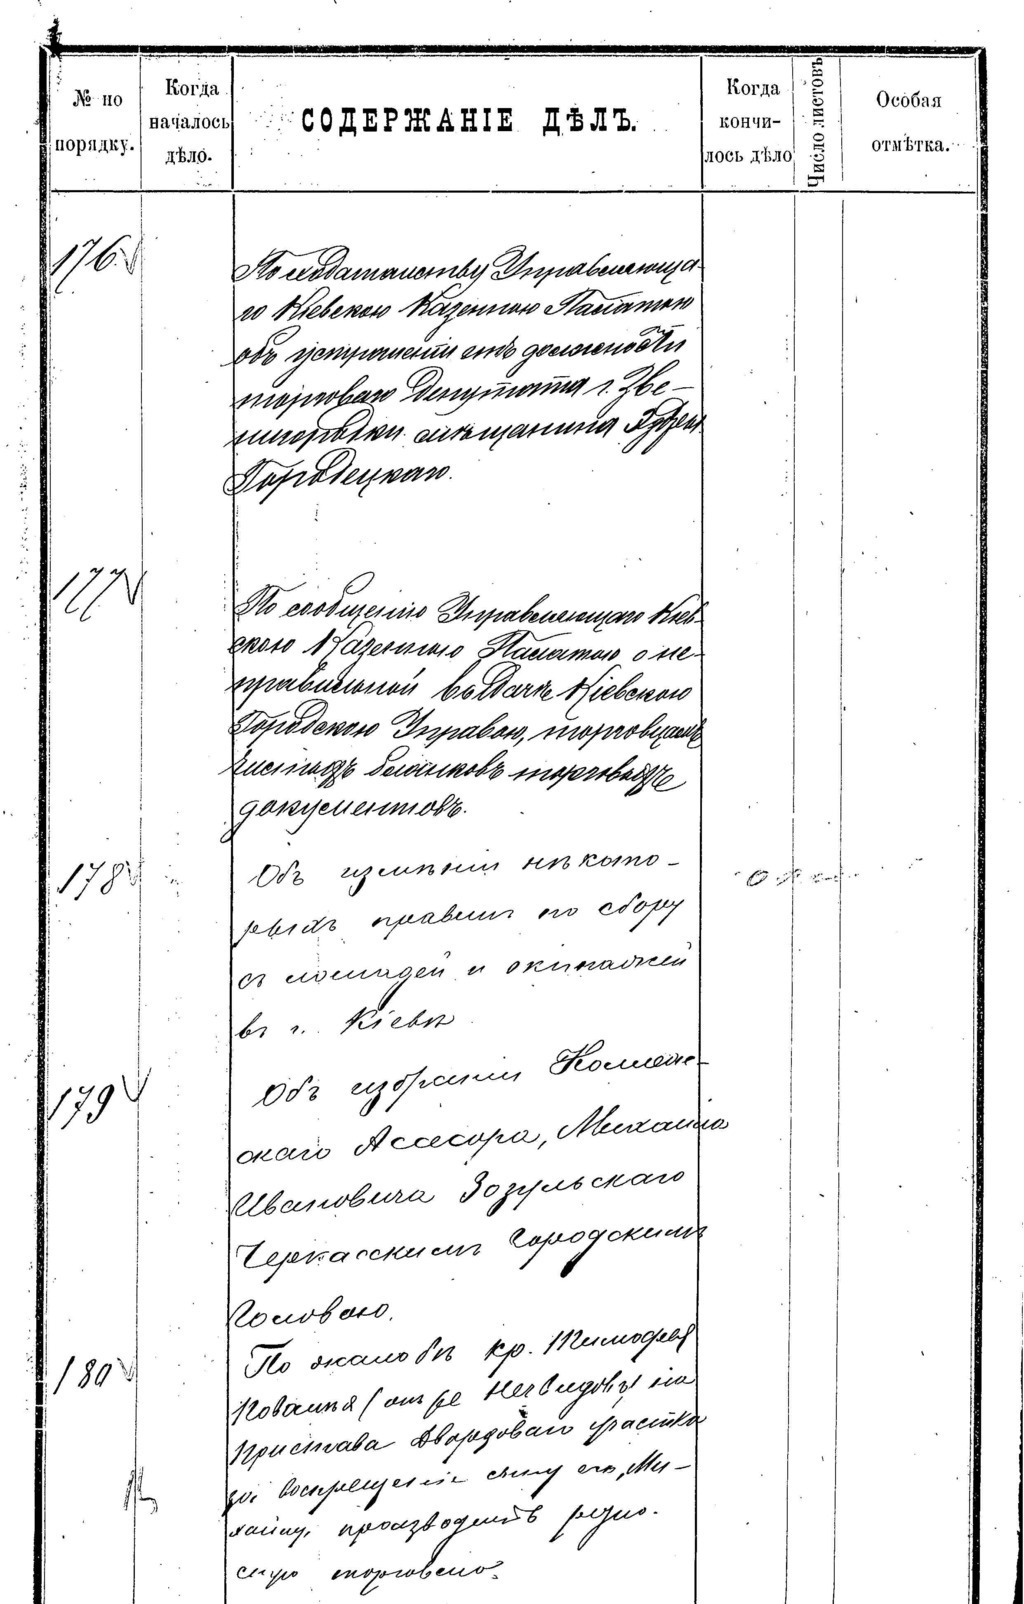 № по порядку.
Когда началось дѣло.
СОДЕРЖАНІЕ ДѢЛЪ.
Когда кончи-лось дѣло
Число листовъ
Особая отмѣтка.
176
По ходатайству Управляюща-
го Кіевскою Казенною Палатою
объ устраненіи отъ должности
торговаго депутата г. Зве-
нигородки мѣщанина
Городецкаго.
177
По сообщенію Управляющаго Кіев-
скою Казенною Палатою о не-
правильной выдачѣ Кіевскою
Городскою Управою, торговцамъ
чистыхъ бланковъ торговыхъ
документовъ.
178
Объ измѣніи нѣкото-
рыхъ правилъ по сбору
съ лошадей и экипажей
въ г. Кіевѣ
179
Объ избраніи Коллеж-
скаго Асесора, Михаила
Ивановича Зозульскаго
Черкасскимъ городскимъ
Головою.
180
По жалобѣ кр. Тимофея
Коваля на
Пристава Дворцоваго участка
за воспрещеніе сыну его, Ми-
хаилу, производить разно-
сную торговлю.